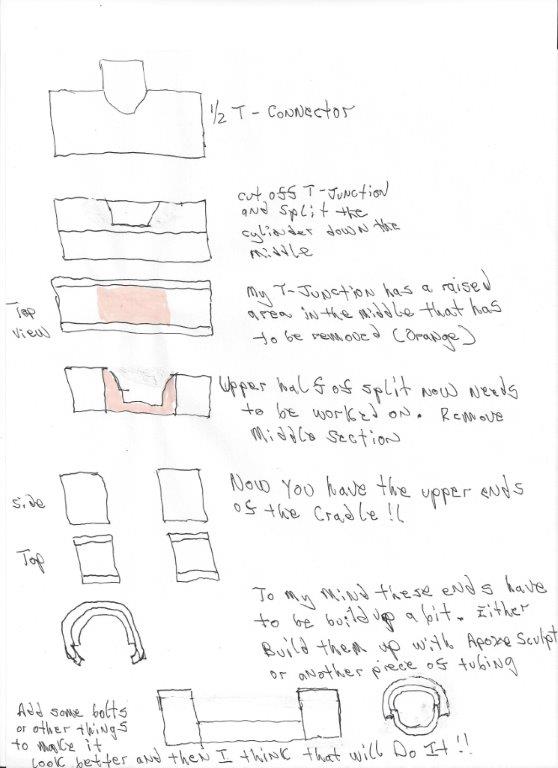 1/2 T-Connector
cut off T-Junction
and split the
cylinder down the
middle
Top
view
My T-Junction has a raised
area in the middle that has
to be removed (Orange)
Upper half of split now needs
to be worked on. Remove
Middle section
side
Now you have the upper ends
of the Cradle!!
Top
To my mind these ends have
to be build up a bit. Either
Build them up with Apoxe Sculpt
or another piece of tubing
Add some bolts
or other things
to make it
look better and then I think that will Do It!!